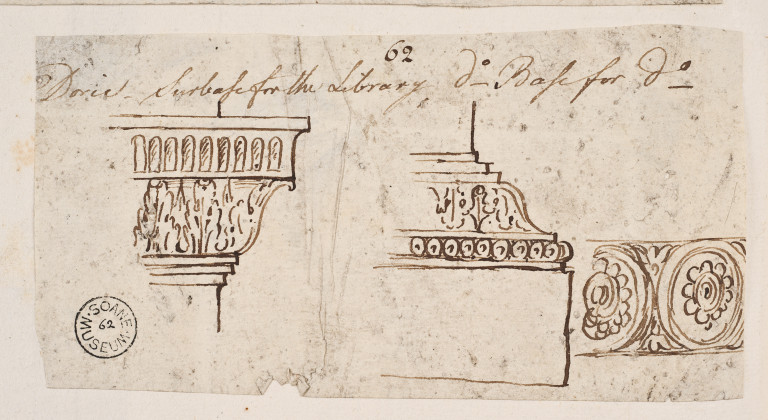 62
Doric Surbase for the Library do Base for do
SOANE MUSEUM
62